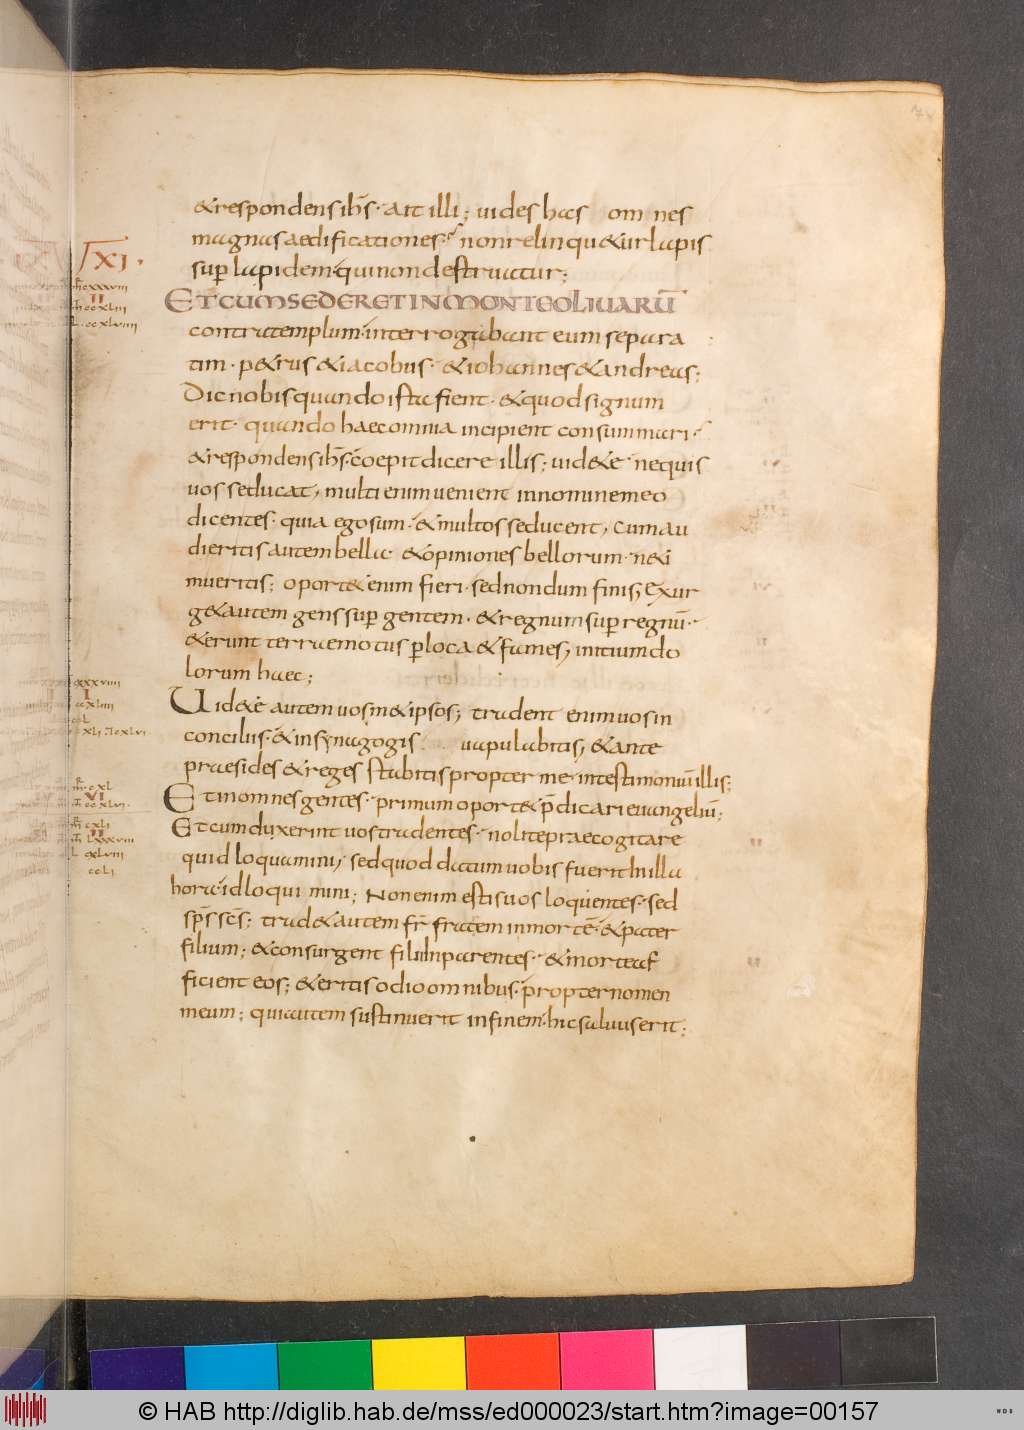 74
&respondens ih̅s· ait illi; uides has om nes
magnas aedificationes· non relinqu&ur lapis
sup̅ lapidem· qui non destruatur;
XI·
ET CUM SEDERET IN MONTE OLIUARU̅
contra templum· interrogabant eum separa
tim· p&rus &iacobus· &iohannes &andreas;
Dic nobis quando ista fient· &quod signum
erit· quando haec omnia incipient consummari·
&respondens ih̅s· coepit dicere illis; uid&e nequis
uos seducat, multi enim uenient in nomine meo
dicentes· quia ego sum· &multos seducent, cum au
dieritis autem bella· &opiniones bellorum· n&i
mueritis; oport& enim fieri· sed nondum finis, Exur
g& autem gens sup̅ gentem· &regnum sup̅ regnu̅·
&erunt terrae motus p̅ loca &fames, initium do
lorum haec;
Uid&e autem uosm&ipsos; tradent enim uos in
conciliis· &in synagogis uapulabitis, &ante
praesides &reges stabitis propter me· in testimoniu̅ illis;
Et in omnes gentes· primum oport& p̅dicari euangeliu̅;
Et cum duxerint uos tradentes· nolite praecogitare
quid loquamini, sed quod datum uobis fuerit in illa
hora· id loqui mini; Non enim estis uos loquentes· sed
sp̅s sc̅s; trad& autem fr̅ fratrem in morte̅· &pater
filium; &consurgent filii in parentes· &morte af
ficient eos; &eritis odio omnibus· propter nomen
meum; qui autem sustinuerit in finem· hic saluus erit;
VI
© HAB http://diglib.hab.de/mss/ed000023/start.htm?image=00157